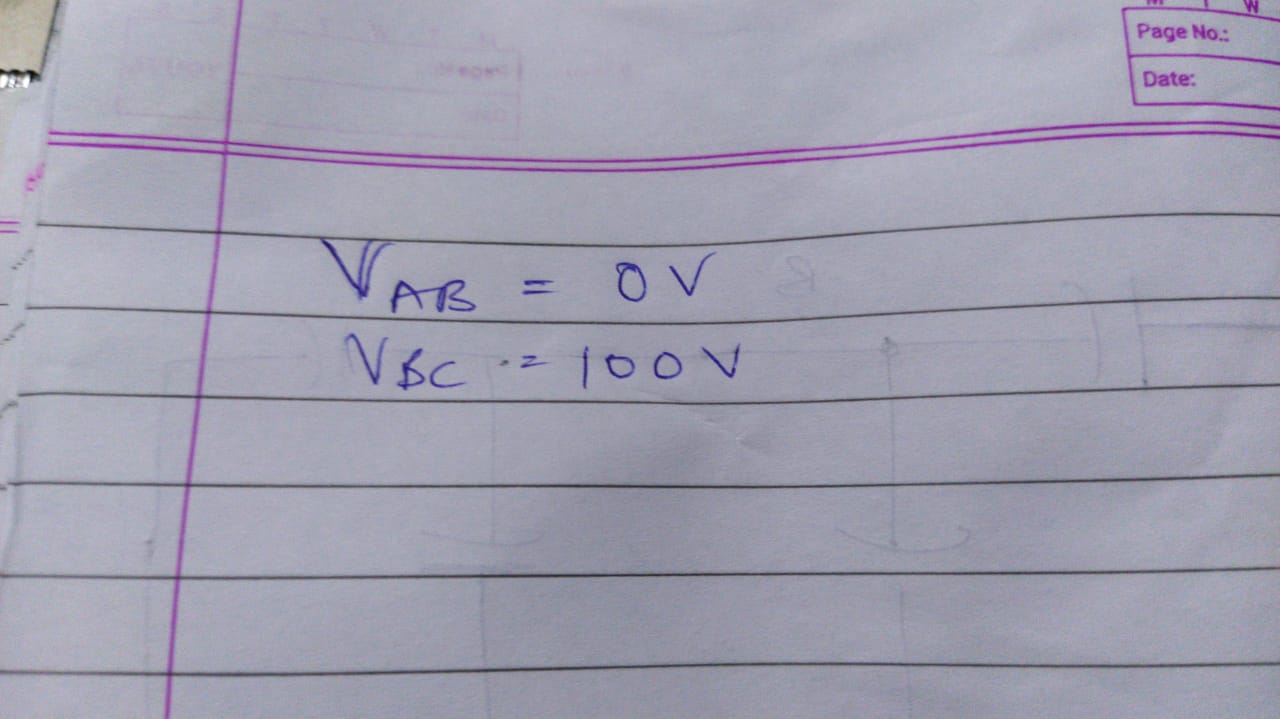 M T W
Page No.:
Date:
V_AB = 0 V
V_BC = 100 V